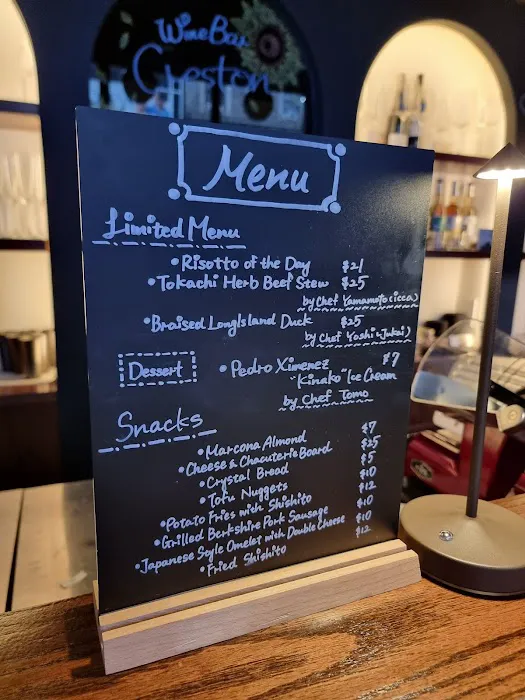 WineBar
Creston
Menu
Limited Menu
•Risotto of the Day $21
•Tokachi Herb Beef Stew $25
by Chef Yamamoto(icca)
•Braised LongIsland Duck $25
by Chef Yoshi(Jukai)
Dessert •Pedro Ximenez $7
"Kinako" Ice Cream
by Chef Tomo
Snacks
•Marcona Almond $7
•Cheese & Chacuterie Board $25
•Crystal Bread $5
•Tofu Nuggets $10
•Potato Fries with Shishito $12
•Grilled Berkshire Pork Sausage $10
•Japanese Soyle Omelet with Double Cheese $10
•Fried Shishito $12